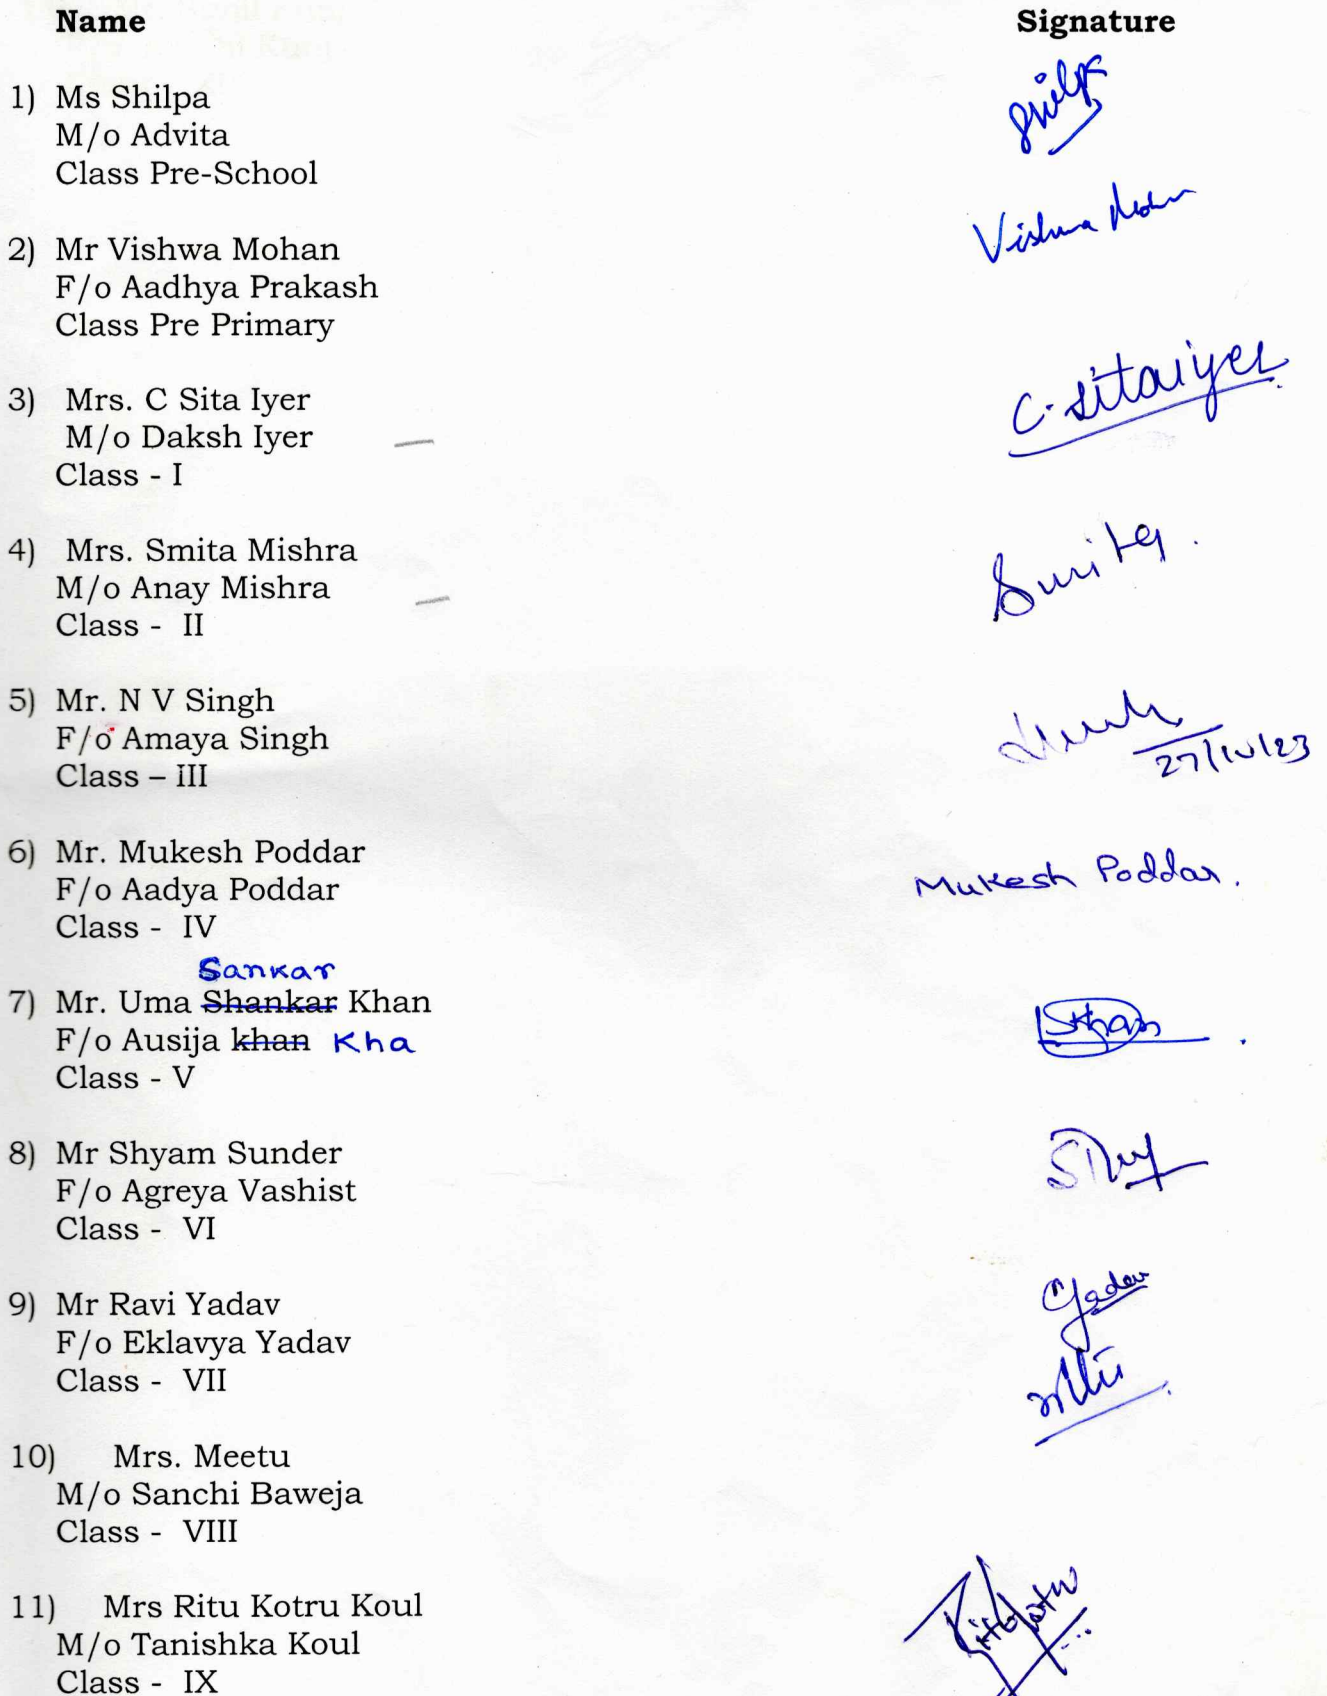 Name Signature
1) Ms Shilpa
M/o Advita
Class Pre-School
Shilpa
2) Mr Vishwa Mohan
F/o Aadhya Prakash
Class Pre Primary
Vishwa Mohan
3) Mrs. C Sita Iyer
M/o Daksh Iyer
Class - I
C. Sitaiyer
4) Mrs. Smita Mishra
M/o Anay Mishra
Class - II
Smita.
5) Mr. N V Singh
F/o Amaya Singh
Class – III
27/10/23
6) Mr. Mukesh Poddar
F/o Aadya Poddar
Class - IV
Mukesh Poddar.
Sankar
7) Mr. Uma Shankar Khan
F/o Ausija khan Kha
Class - V
8) Mr Shyam Sunder
F/o Agreya Vashist
Class - VI
9) Mr Ravi Yadav
F/o Eklavya Yadav
Class - VII
Yadav
10) Mrs. Meetu
M/o Sanchi Baweja
Class - VIII
11) Mrs Ritu Kotru Koul
M/o Tanishka Koul
Class - IX
Ritu Kotru